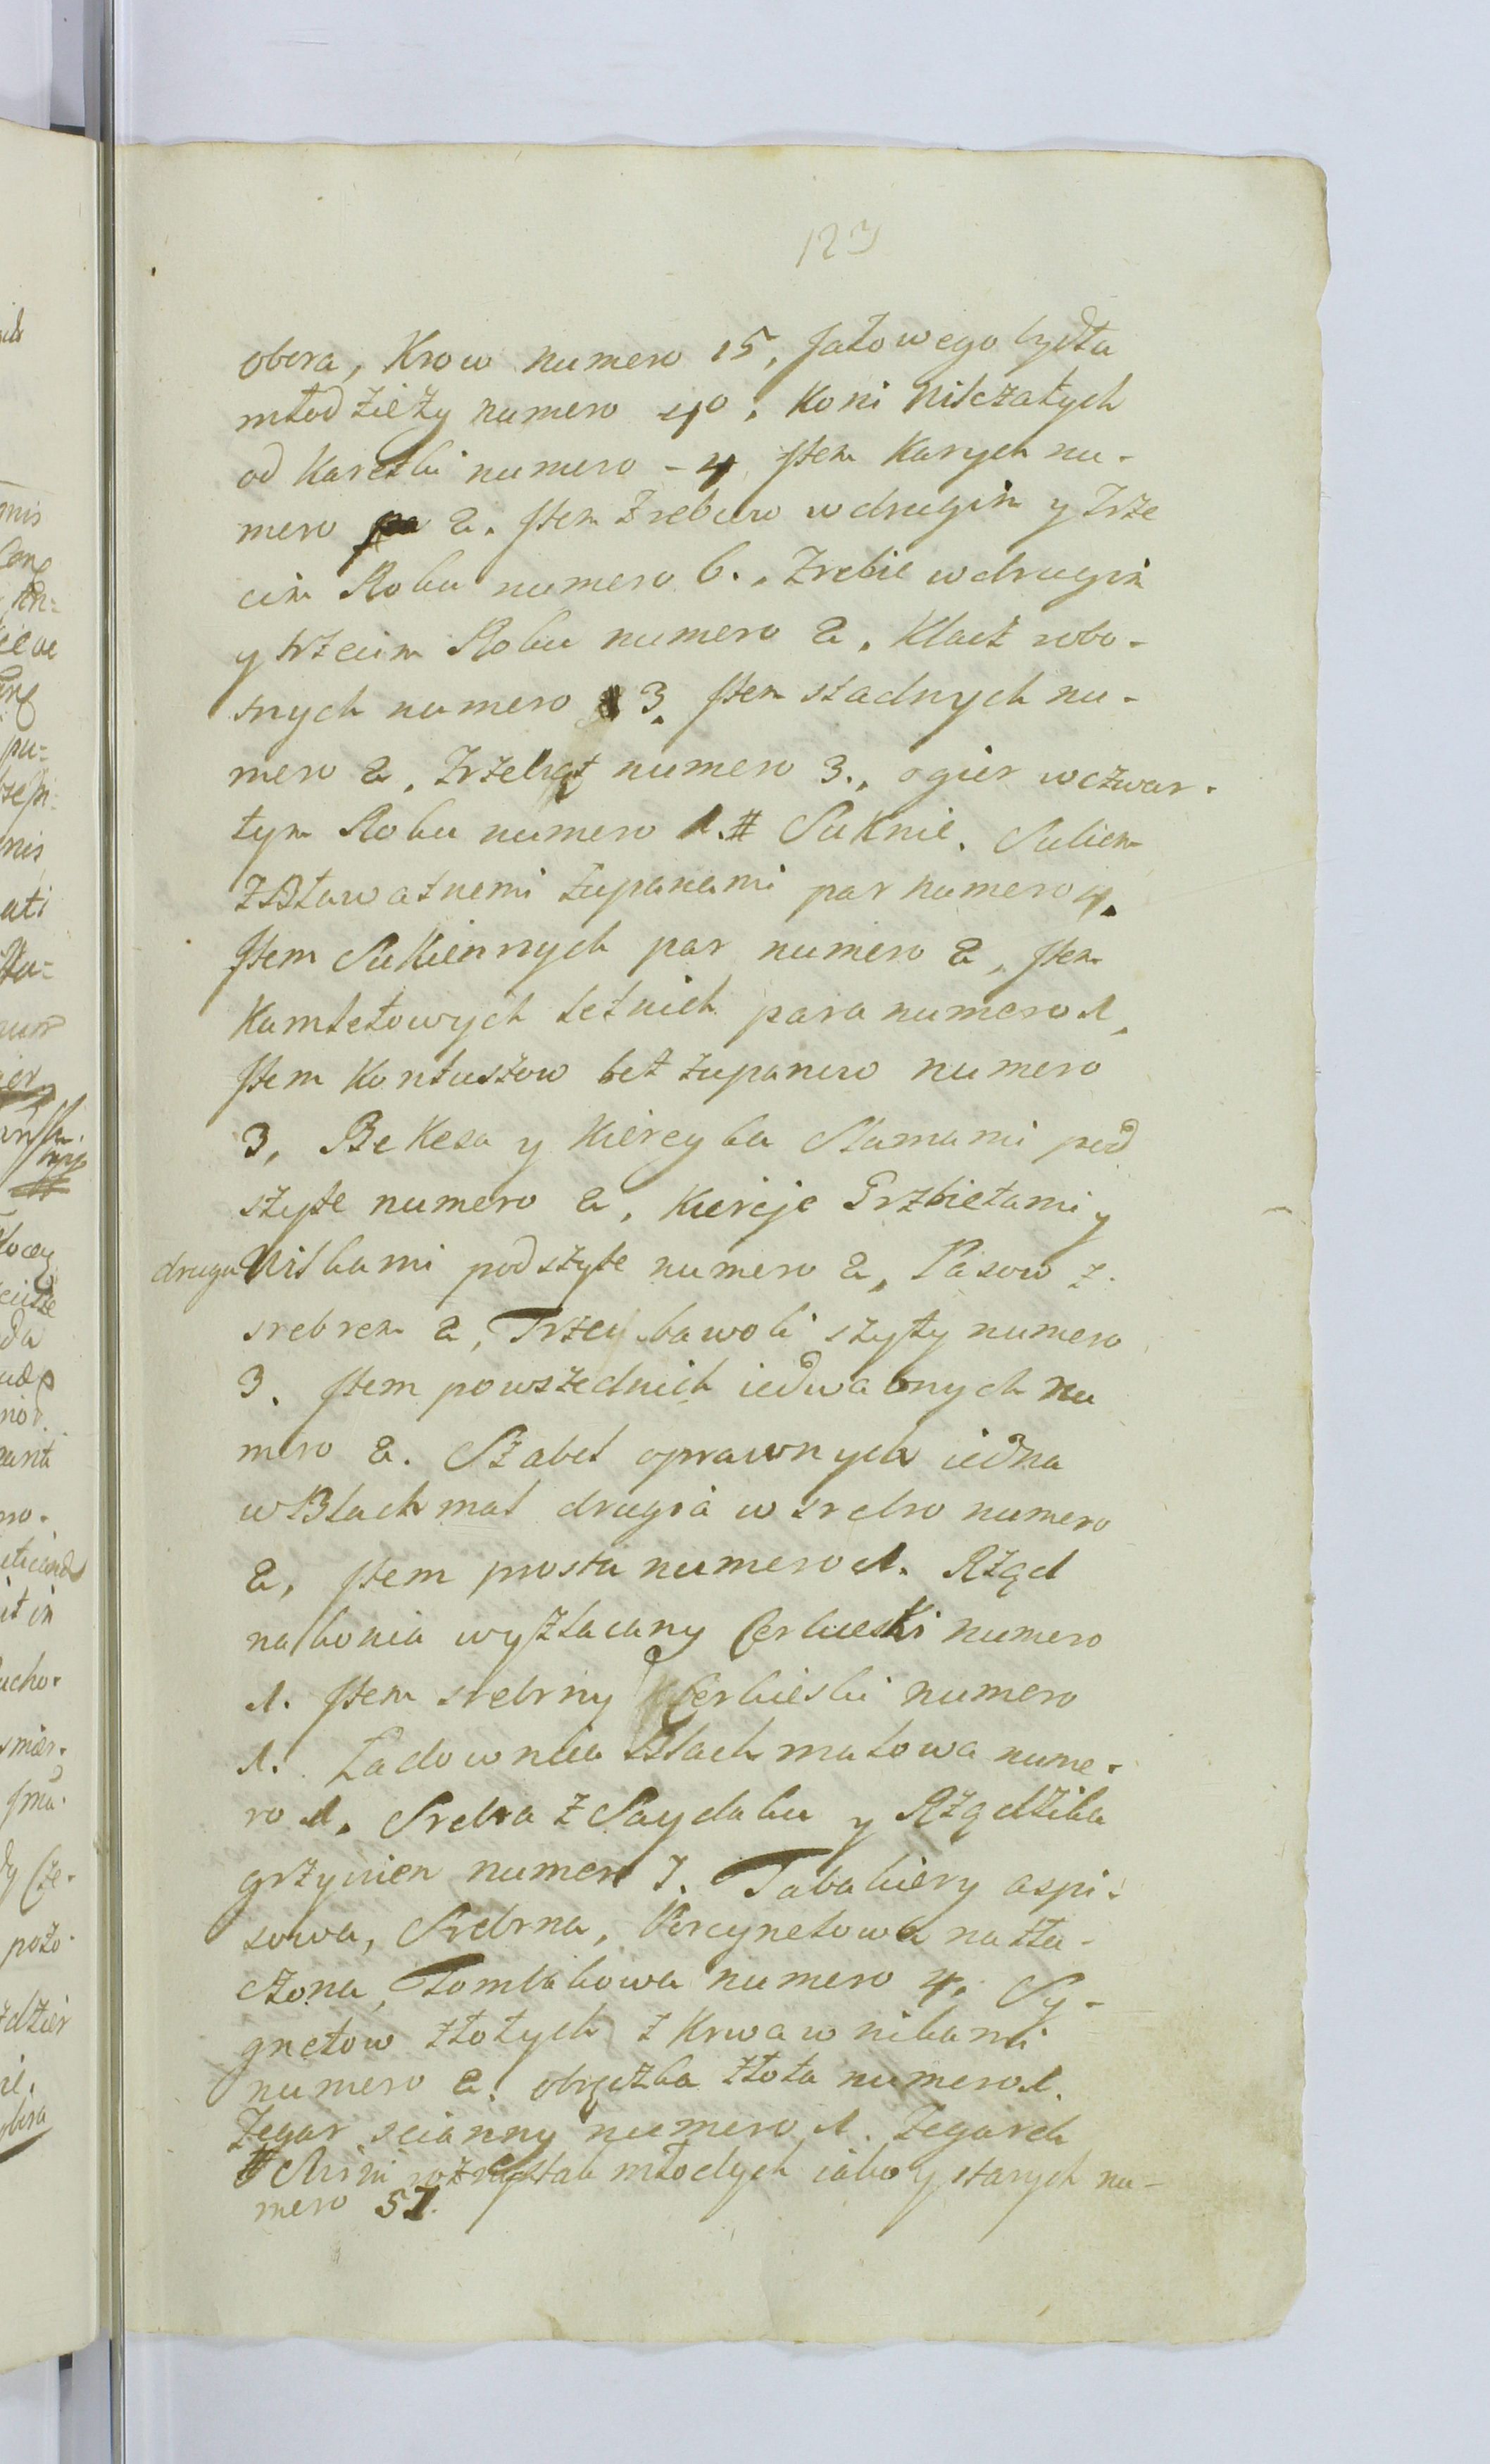 123
obora, Krow numero 15, Jałowego bydła
młodzieży numero 40, Koni Nilczatych
od Karetki numero - 4 Item Karych nu-
mero 2. Item Zrebcow w drugim y Trze
cim Roku numero 6., Zrebie w drugim
y trzecim Roku numero 2, Klacz robo-
snych numero 3, Item stadnych nu-
mero 2, Zrzebiąt numero 3., ogier w czwar-
tym Roku numero 1.# Suknie. Sukien
z żupanami par numero 4.
Item Sukiennych par numero 2, Item
Kamletowych letnich para numero 1,
Item Kontuszow bez żupanow numero
3, Bekesa y Kiereyka Slamami pod
szyte numero 2, Kiereje Grzbietami y
druga Wilkami podszyte numero 2, Pasow z
srebrem 2, numero
3. Item powszednich iedwabnych nu
mero 2. Szabel oprawnych iedna
w Blachmal druga w srebro numero
2, Item prosta numero 1. Rząd
na konia wyzłacany Cerkieski numero
1. Item srebrny Cerkieski numero
1. Ładownica Blachmalowa nume-
ro 1, Srebra z Saydaku y Rządzika
grzywien numero 7. Tabakiery aspi-
sowa, Srebrna, Porcynelowa na tła-
czona, Tombakowa numero 4, Sy-
gnetow złotych z Krwawnikami
numero 2. obrączka złota numero 1.
Zegar scianny numero 1. Zegarek
# młodych iako y starych nu-
mero 57.